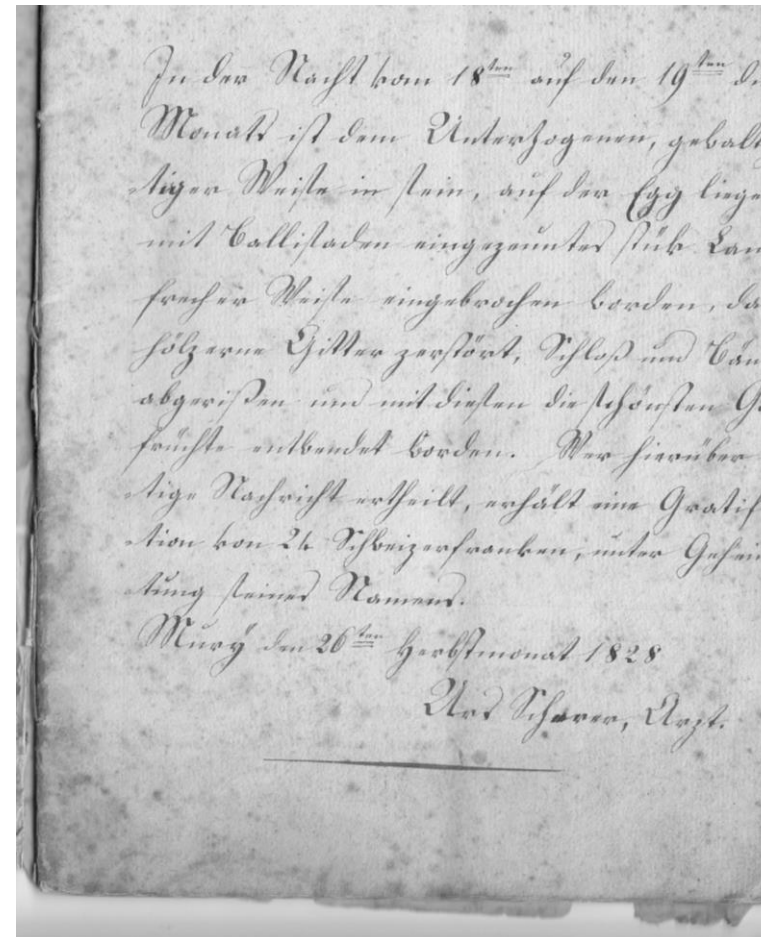 In der Nacht vom 18ten auf den 19ten d.
Monats ist dem Unterzogenen, gewalt
-tiger Weise in sein, auf der Egg liege
mit Ballisaden eingezeuntes stük Lan
frecher Weise eingebrochen worden, da
hölzerne Gitter zerstört, Schloß und Bän
abgerißen und mit diesen die schönsten G
früchte entwendet worden. Wer hierüber
-tige Nachricht ertheilt, erhält eine Gratif
-tion von 24 Schweizerfranken, unter Gehei
-tung seines Namens.
Mury den 26ten Herbstmonat 1828
Urs Scherer, Arzt.